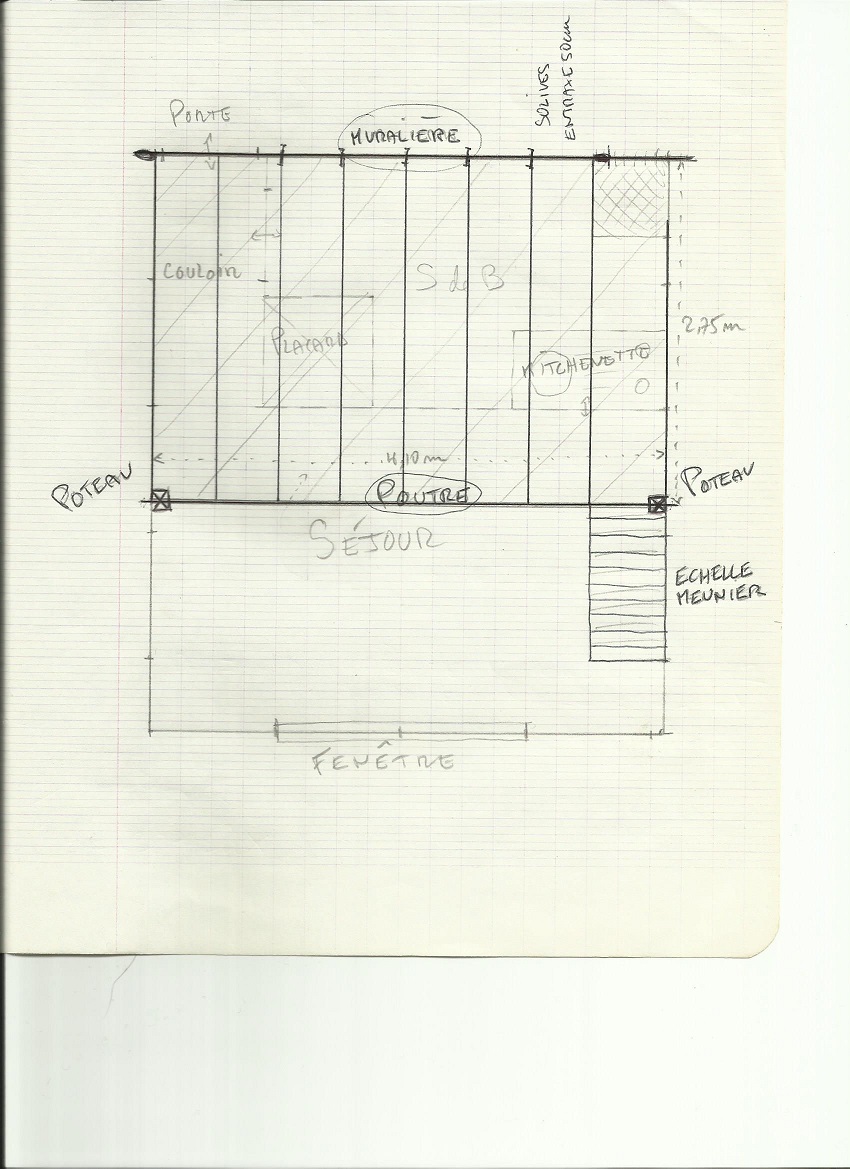 SOLIVES
ENTRAXE 50cm
PORTE
MURALIERE
COULOIR
S de B
PLACARD
2,75m
KITCHENETTE
4,10m
POTEAU
POUTRE
POTEAU
SÉJOUR
ECHELLE
MEUNIER
FENÊTRE